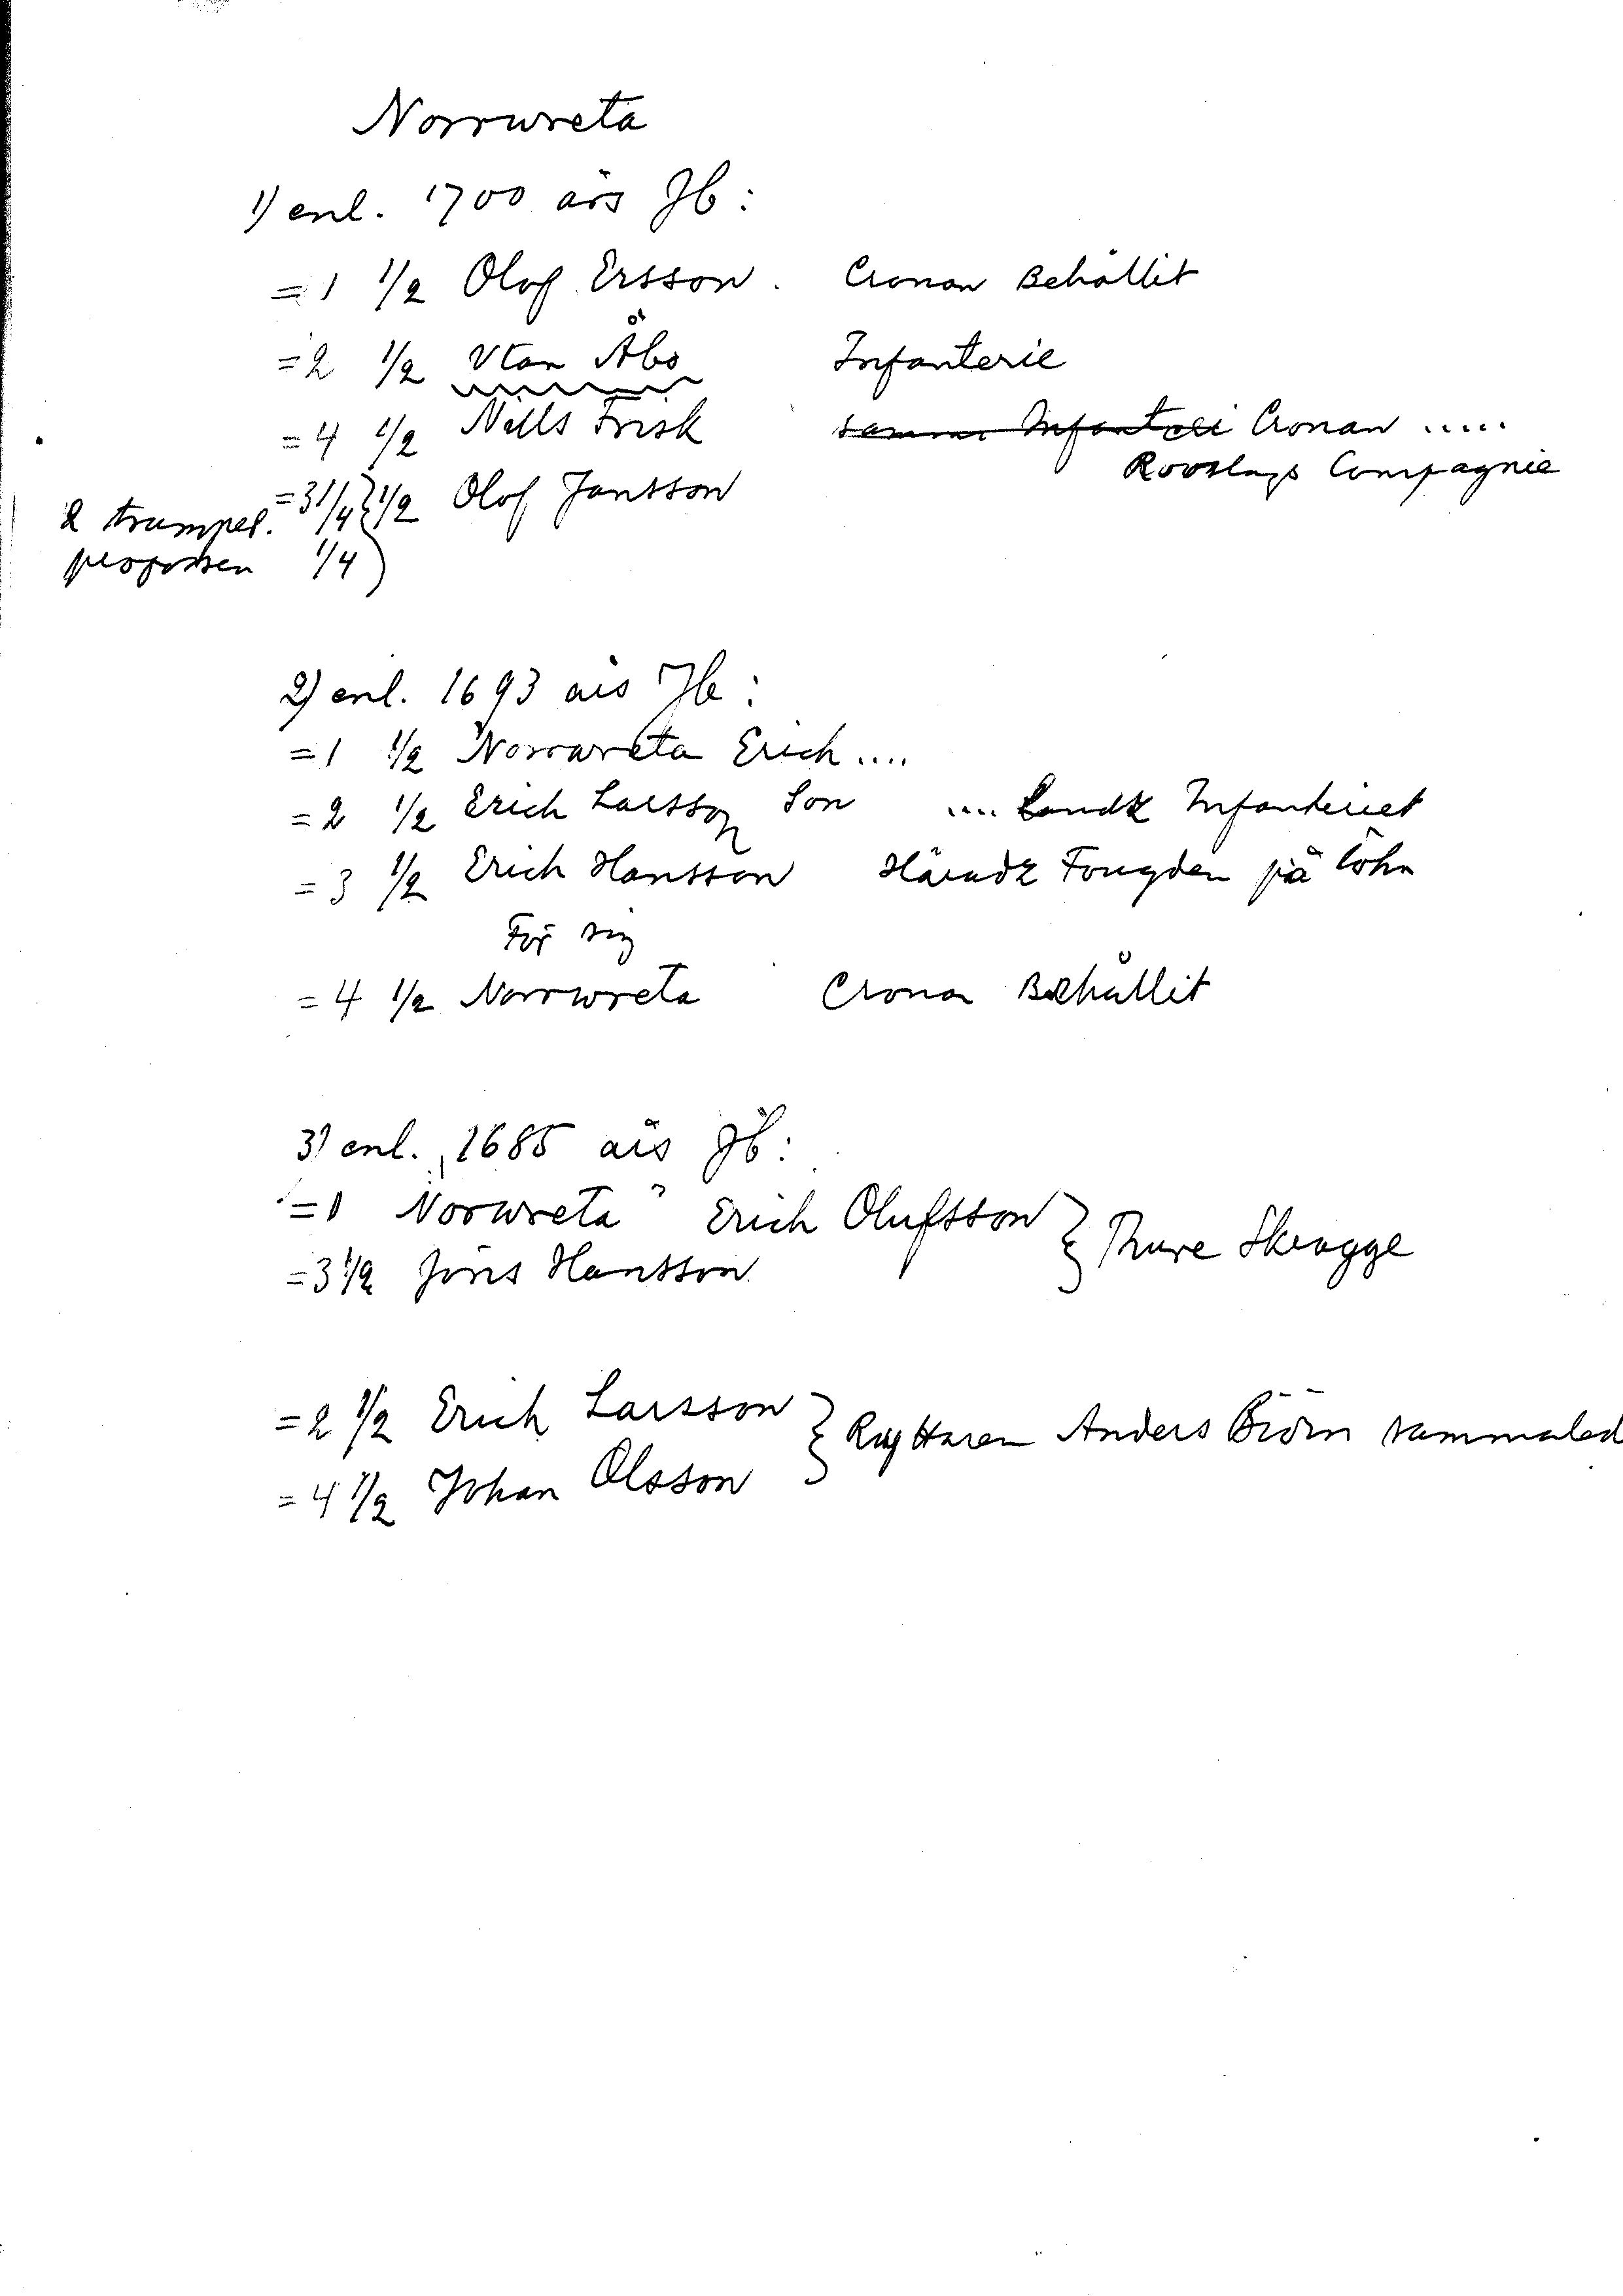 Norrwreta
1) enl. 1700 års Jb:
=1 1/2 Olof Ersson. Cronan Behållit
=2 1/2 Utan Åbo Infanterie
=4 1/2 Nills Frisk samma Infanteri Cronan .....
Roosslags Compagnie
=3 1/4 } 1/2 Olof Jansson
2 trumpet.
profossen 1/4 )
2) enl. 1693 års Jb:
=1 1/2 Norrwreta Erich ....
=2 1/2 Erich Larsson Son .... Landz Infanteriet
=3 1/2 Erich Hansson Häradz Fougden på Löhn
För sig
=4 1/2 Norrwreta Cronon Behållit
3) enl. 1685 års Jb:
=1 Norwreta Erich Olufsson } Thure Skragge
=3 1/2 Jöns Hansson
=2 1/2 Erich Larsson } Ryttaren Anders Biörn sammaled
=4 1/2 Johan Olsson